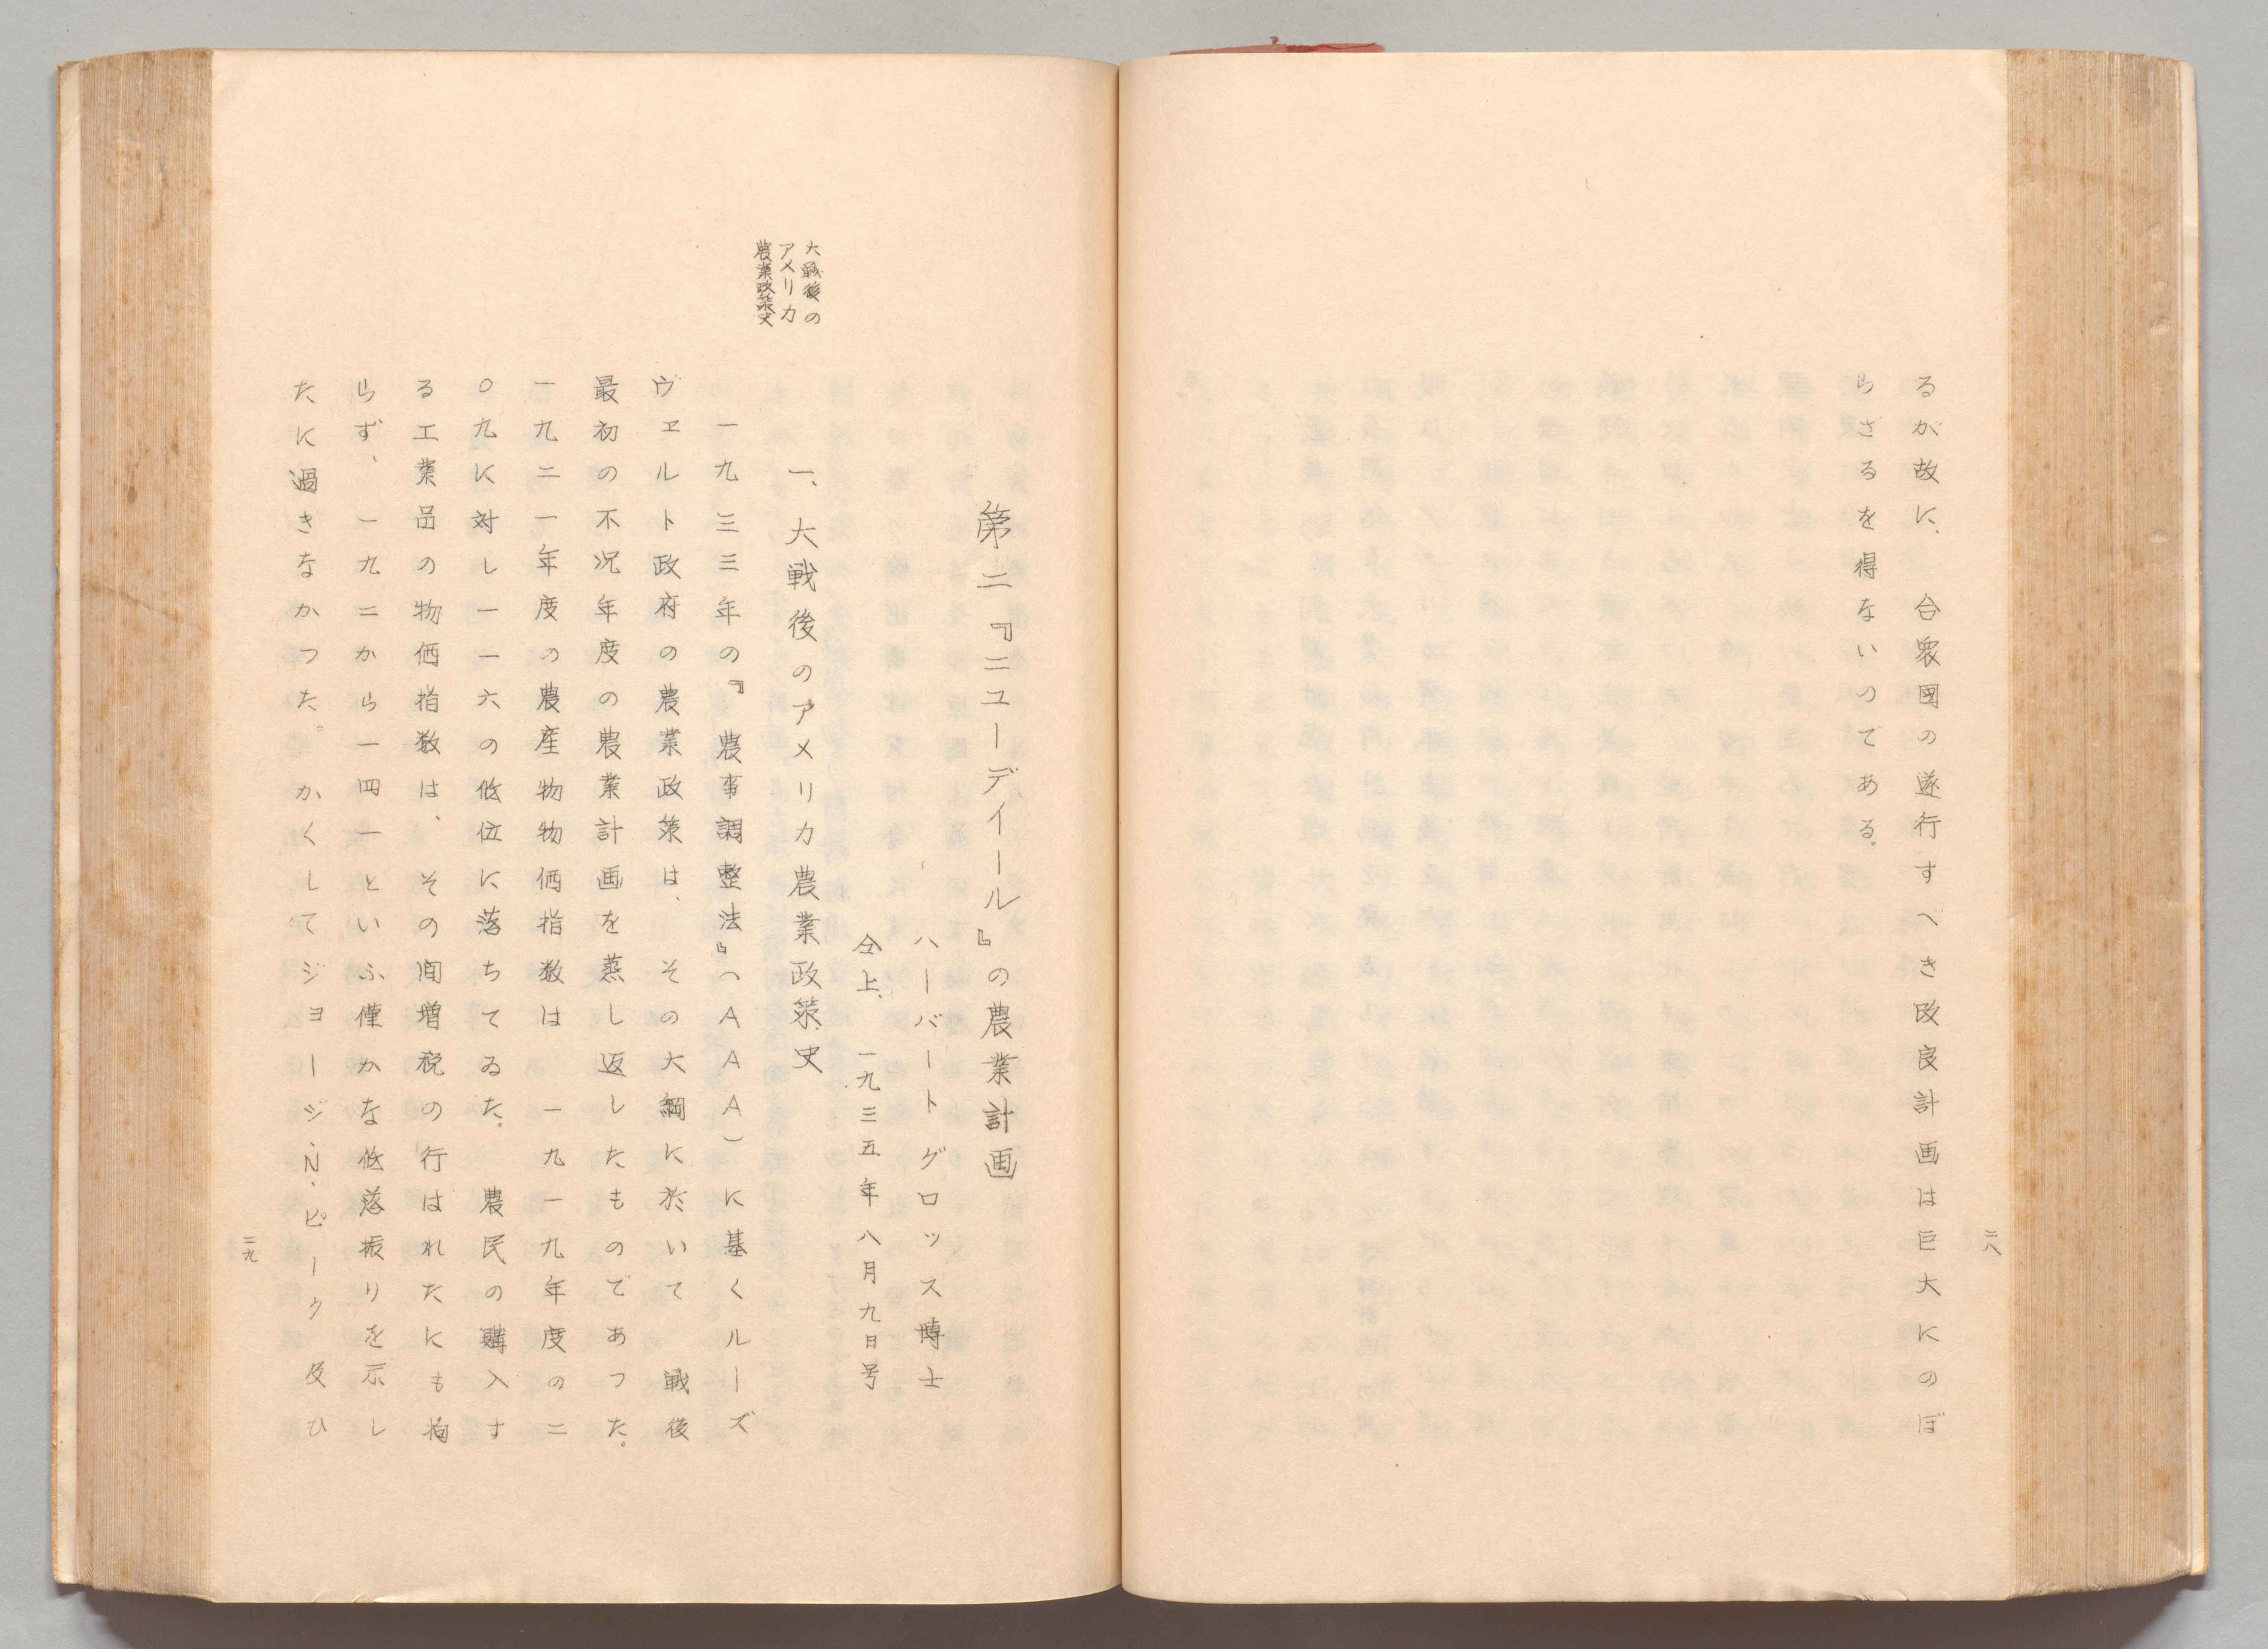 るが故に、合衆国の遂行すべき改良計画は巨大にのぼ
らざるを得ないのである。
二八
第二『ニューデイール』の農業計画
ハーバートグロッス博士
仝上、一九三五年八月九日号
大戦後の
アメリカ
農業政策史
一、大戦後のアメリカ農業政策史
一九三三年の『農事調整法』(AAA)に基くルーズ
ヴェルト政府の農業政策は、その大綱に於いて戦後
最初の不況年度の農業計画を蒸し返したものであつた。
一九二一年度の農産物物価指数は一九一九年度の二
〇九に対し一一六の低位に落ちてゐた。農民の購入す
る工業品の物価指数は、その間増税の行はれたにも拘
らず、一九二から一四一といふ僅かな低落振りを示し
たに過きなかつた。かくしてジョージ、N、ピーク及ひ
二九